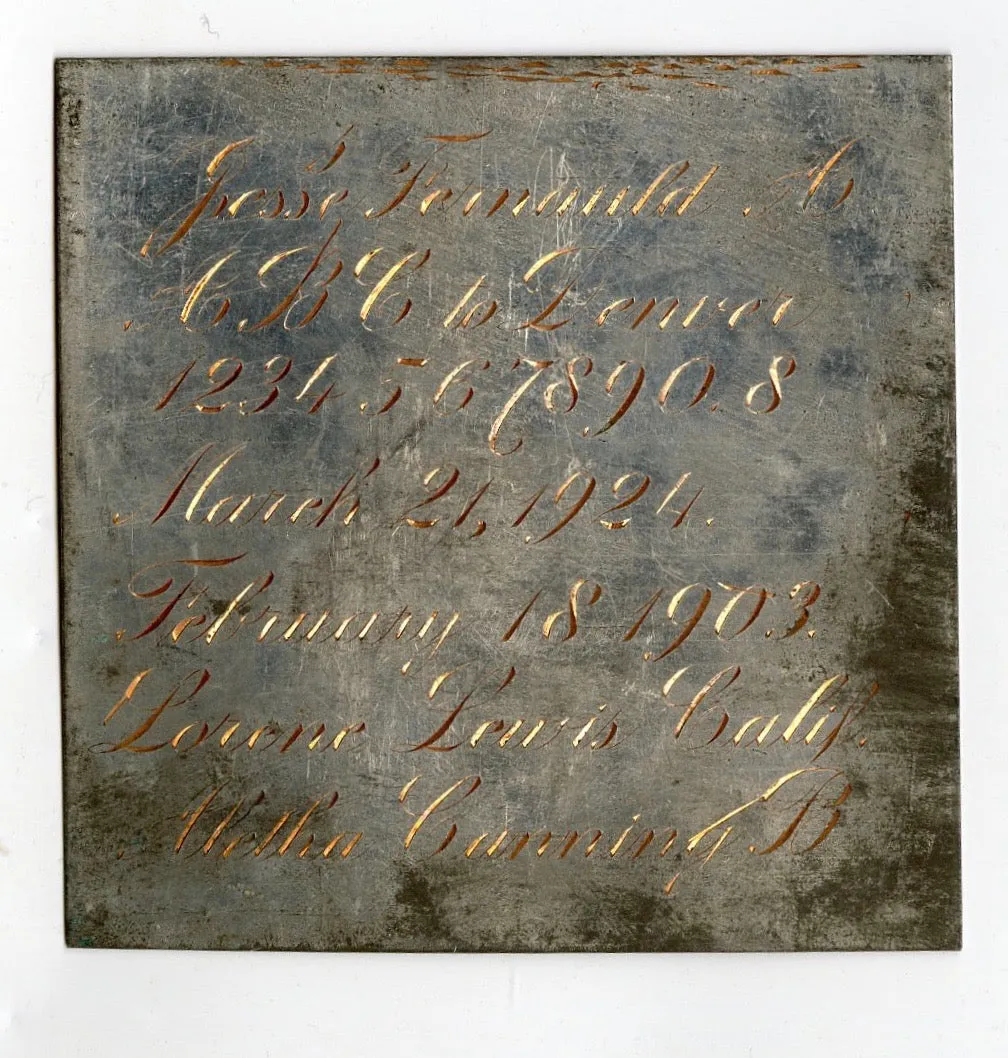 Jesse Fernauld A
A B C to Denver
1234 5 67890. 8
March 21, 1924.
February 18 1903.
Lorene Lewis Calif.
Canning B